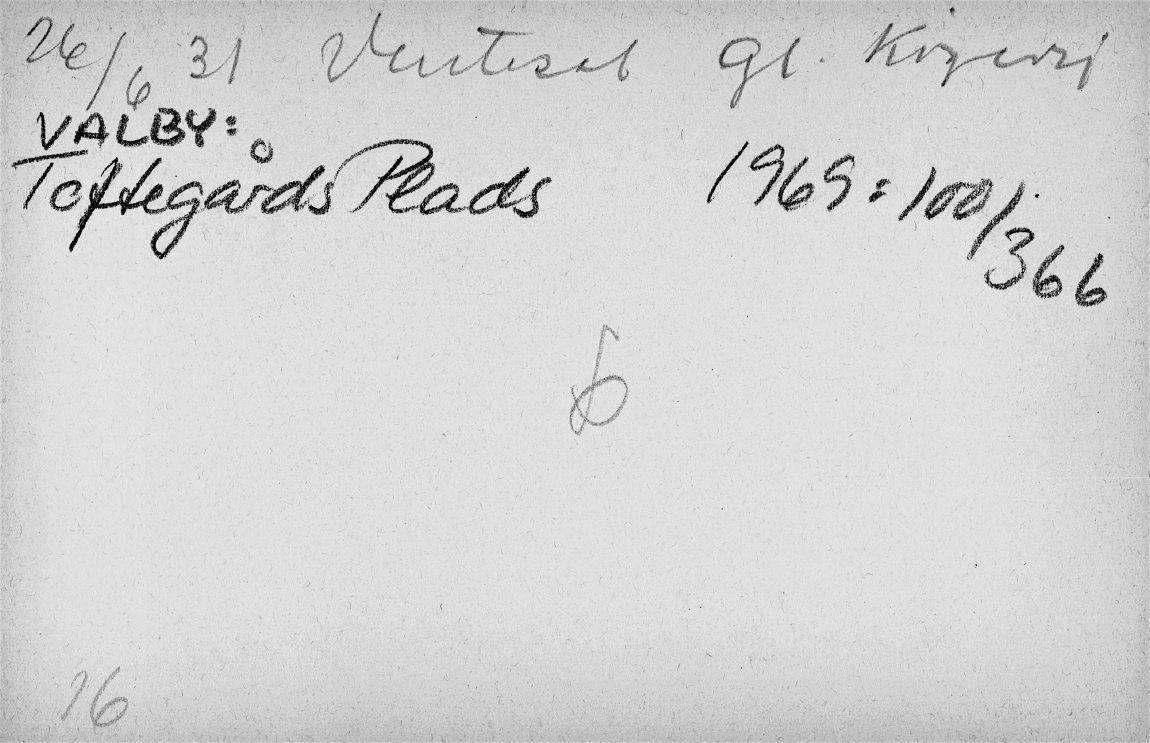 26/6 31 Ventesal Gl. Køgevej
VALBY:
Toftegårds Plads 1969: 100/366
6
16